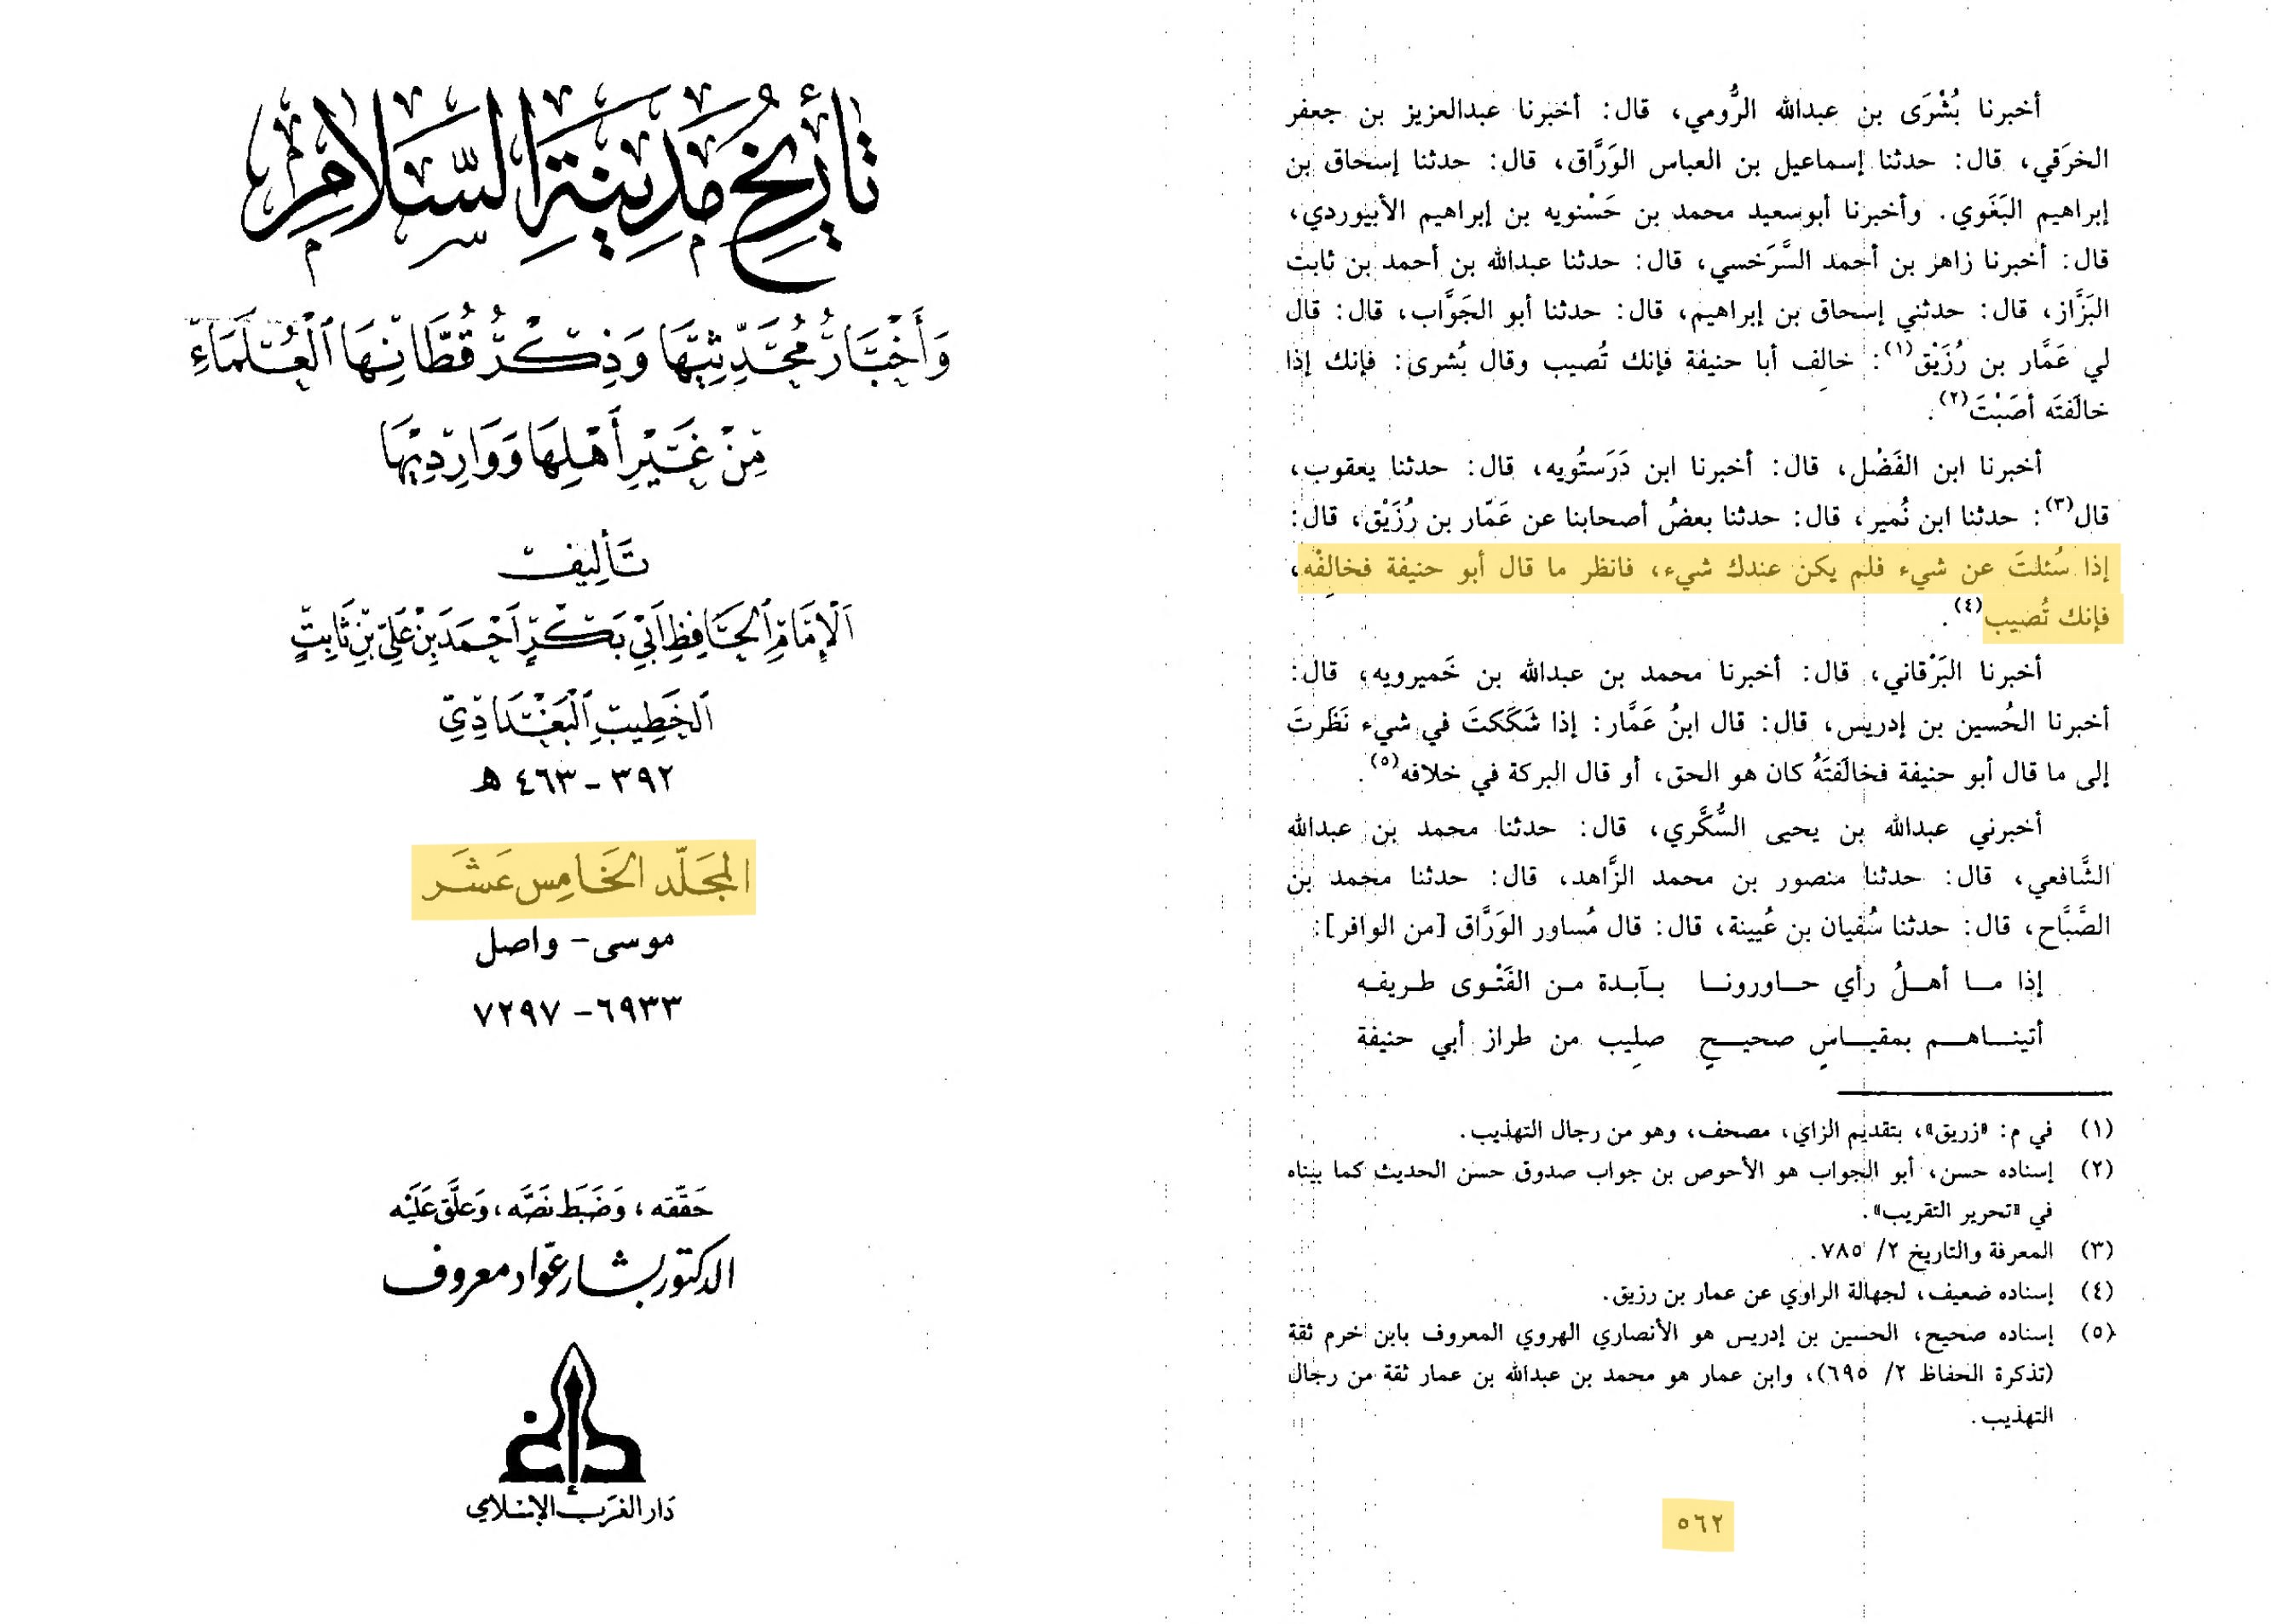 تأريخ مدينة السلام
وَأَخْبَارُ مُحَدِّثِيهَا وَذِكْرُ قُطَّانِهَا ٱلْعُلَمَاءِ
مِنْ غَيْرِ أَهْلِهَا وَوَارِدِيهَا
تَأليف
الْإِمَامِ الْحَافِظِ أَبِي بَكْرٍ أَحْمَدَ بْنِ عَلِيِّ بْنِ ثَابِتٍ
الْخَطِيبِ الْبَغْدَادِيِّ
٣٩٢ - ٤٦٣ هـ
المجَلّد الخَامِس عَشَر
موسى - واصل
٦٩٣٣ - ٧٢٩٧
حَقّقه، وَضَبَط نَصَّه، وَعَلَّق عَلَيْه
الدكتور بشار عوّاد معروف
دَار الغَرب الإسْلامي
أخبرنا بُشْرَى بن عبدالله الرُّومي، قال: أخبرنا عبدالعزيز بن جعفر
الخرَقي، قال: حدثنا إسماعيل بن العباس الوَرَّاق، قال: حدثنا إسحاق بن
إبراهيم البَغَوي. وأخبرنا أبو سعيد محمد بن حَسْنويه بن إبراهيم الأبيوردي،
قال: أخبرنا زاهر بن أحمد السَّرَخسي، قال: حدثنا عبدالله بن أحمد بن ثابت
البَزَّاز، قال: حدثني إسحاق بن إبراهيم، قال: حدثنا أبو الجَوَّاب، قال: قال
لي عَمَّار بن رُزَيْق(١): خالِف أبا حنيفة فإنك تُصيب وقال بُشرى: فإنك إذا
خالَفتَه أصَبْتَ(٢).
أخبرنا ابن الفَضْل، قال: أخبرنا ابن دَرَستُويه، قال: حدثنا يعقوب،
قال(٣): حدثنا ابن نُمير، قال: حدثنا بعضُ أصحابنا عن عَمّار بن رُزَيْق، قال:
إذا سُئلتَ عن شيء فلم يكن عندك شيء، فانظر ما قال أبو حنيفة فخالِفْه،
فإنك تُصيب(٤).
أخبرنا البَرْقاني، قال: أخبرنا محمد بن عبدالله بن خَميرويه، قال:
أخبرنا الحُسين بن إدريس، قال: قال ابنُ عَمَّار: إذا شَكَكتَ في شيء نَظَرتَ
إلى ما قال أبو حنيفة فخالَفتَهُ كان هو الحق، أو قال البركة في خلافه(٥).
أخبرني عبدالله بن يحيى السُّكَّري، قال: حدثنا محمد بن عبدالله
الشَّافعي، قال: حدثنا منصور بن محمد الزَّاهد، قال: حدثنا محمد بن
الصَّبَّاح، قال: حدثنا سُفيان بن عُيينة، قال: قال مُساور الوَرَّاق [من الوافر]:
إذا ما أهلُ رأي حاورونا بآبدة من الفَتْوى طريفه
أتيناهم بمقياسٍ صحيحٍ صلِيب من طراز أبي حنيفة
(١) في م: «زريق»، بتقديم الزاي، مصحف، وهو من رجال التهذيب.
(٢) إسناده حسن، أبو الجواب هو الأحوص بن جواب صدوق حسن الحديث كما بيناه
في «تحرير التقريب».
(٣) المعرفة والتاريخ ٢/ ٧٨٥.
(٤) إسناده ضعيف، لجهالة الراوي عن عمار بن رزيق.
(٥) إسناده صحيح، الحسين بن إدريس هو الأنصاري الهروي المعروف بابن خرم ثقة
(تذكرة الحفاظ ٢/ ٦٩٥)، وابن عمار هو محمد بن عبدالله بن عمار ثقة من رجال
التهذيب.
٥٦٢